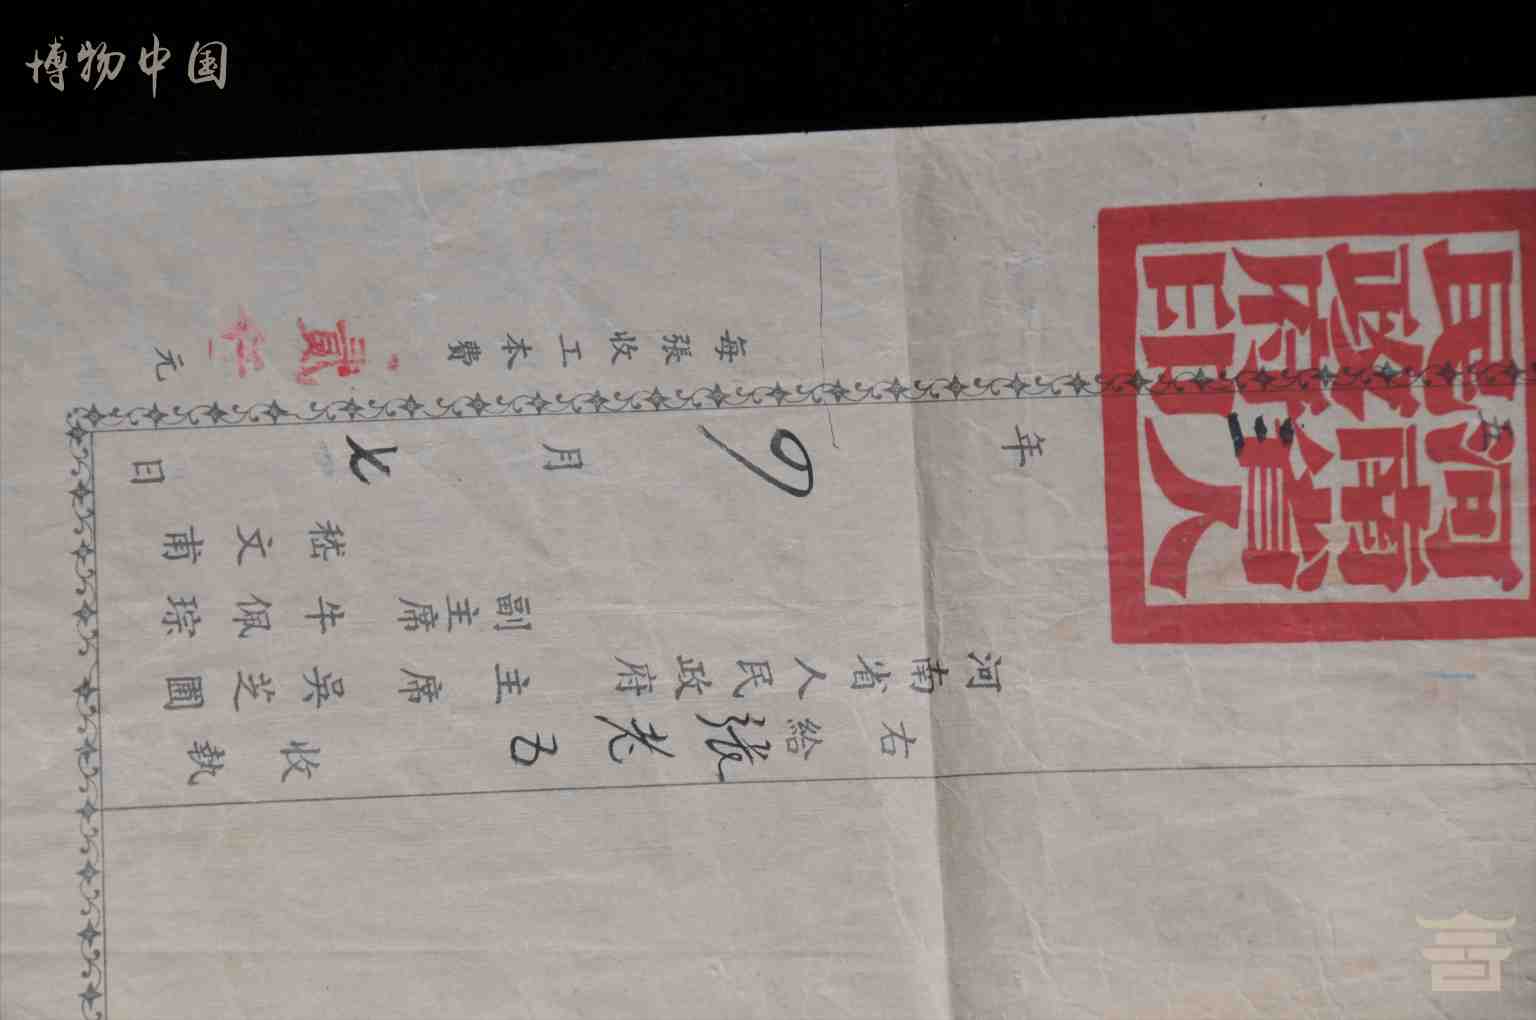 博物中国
右給張老五收執
河南省人民政府主席吳芝圃
副主席牛佩琮
嵇文甫
五三年9月七日
河南省人
民政府印
每張收工本費貳仟元